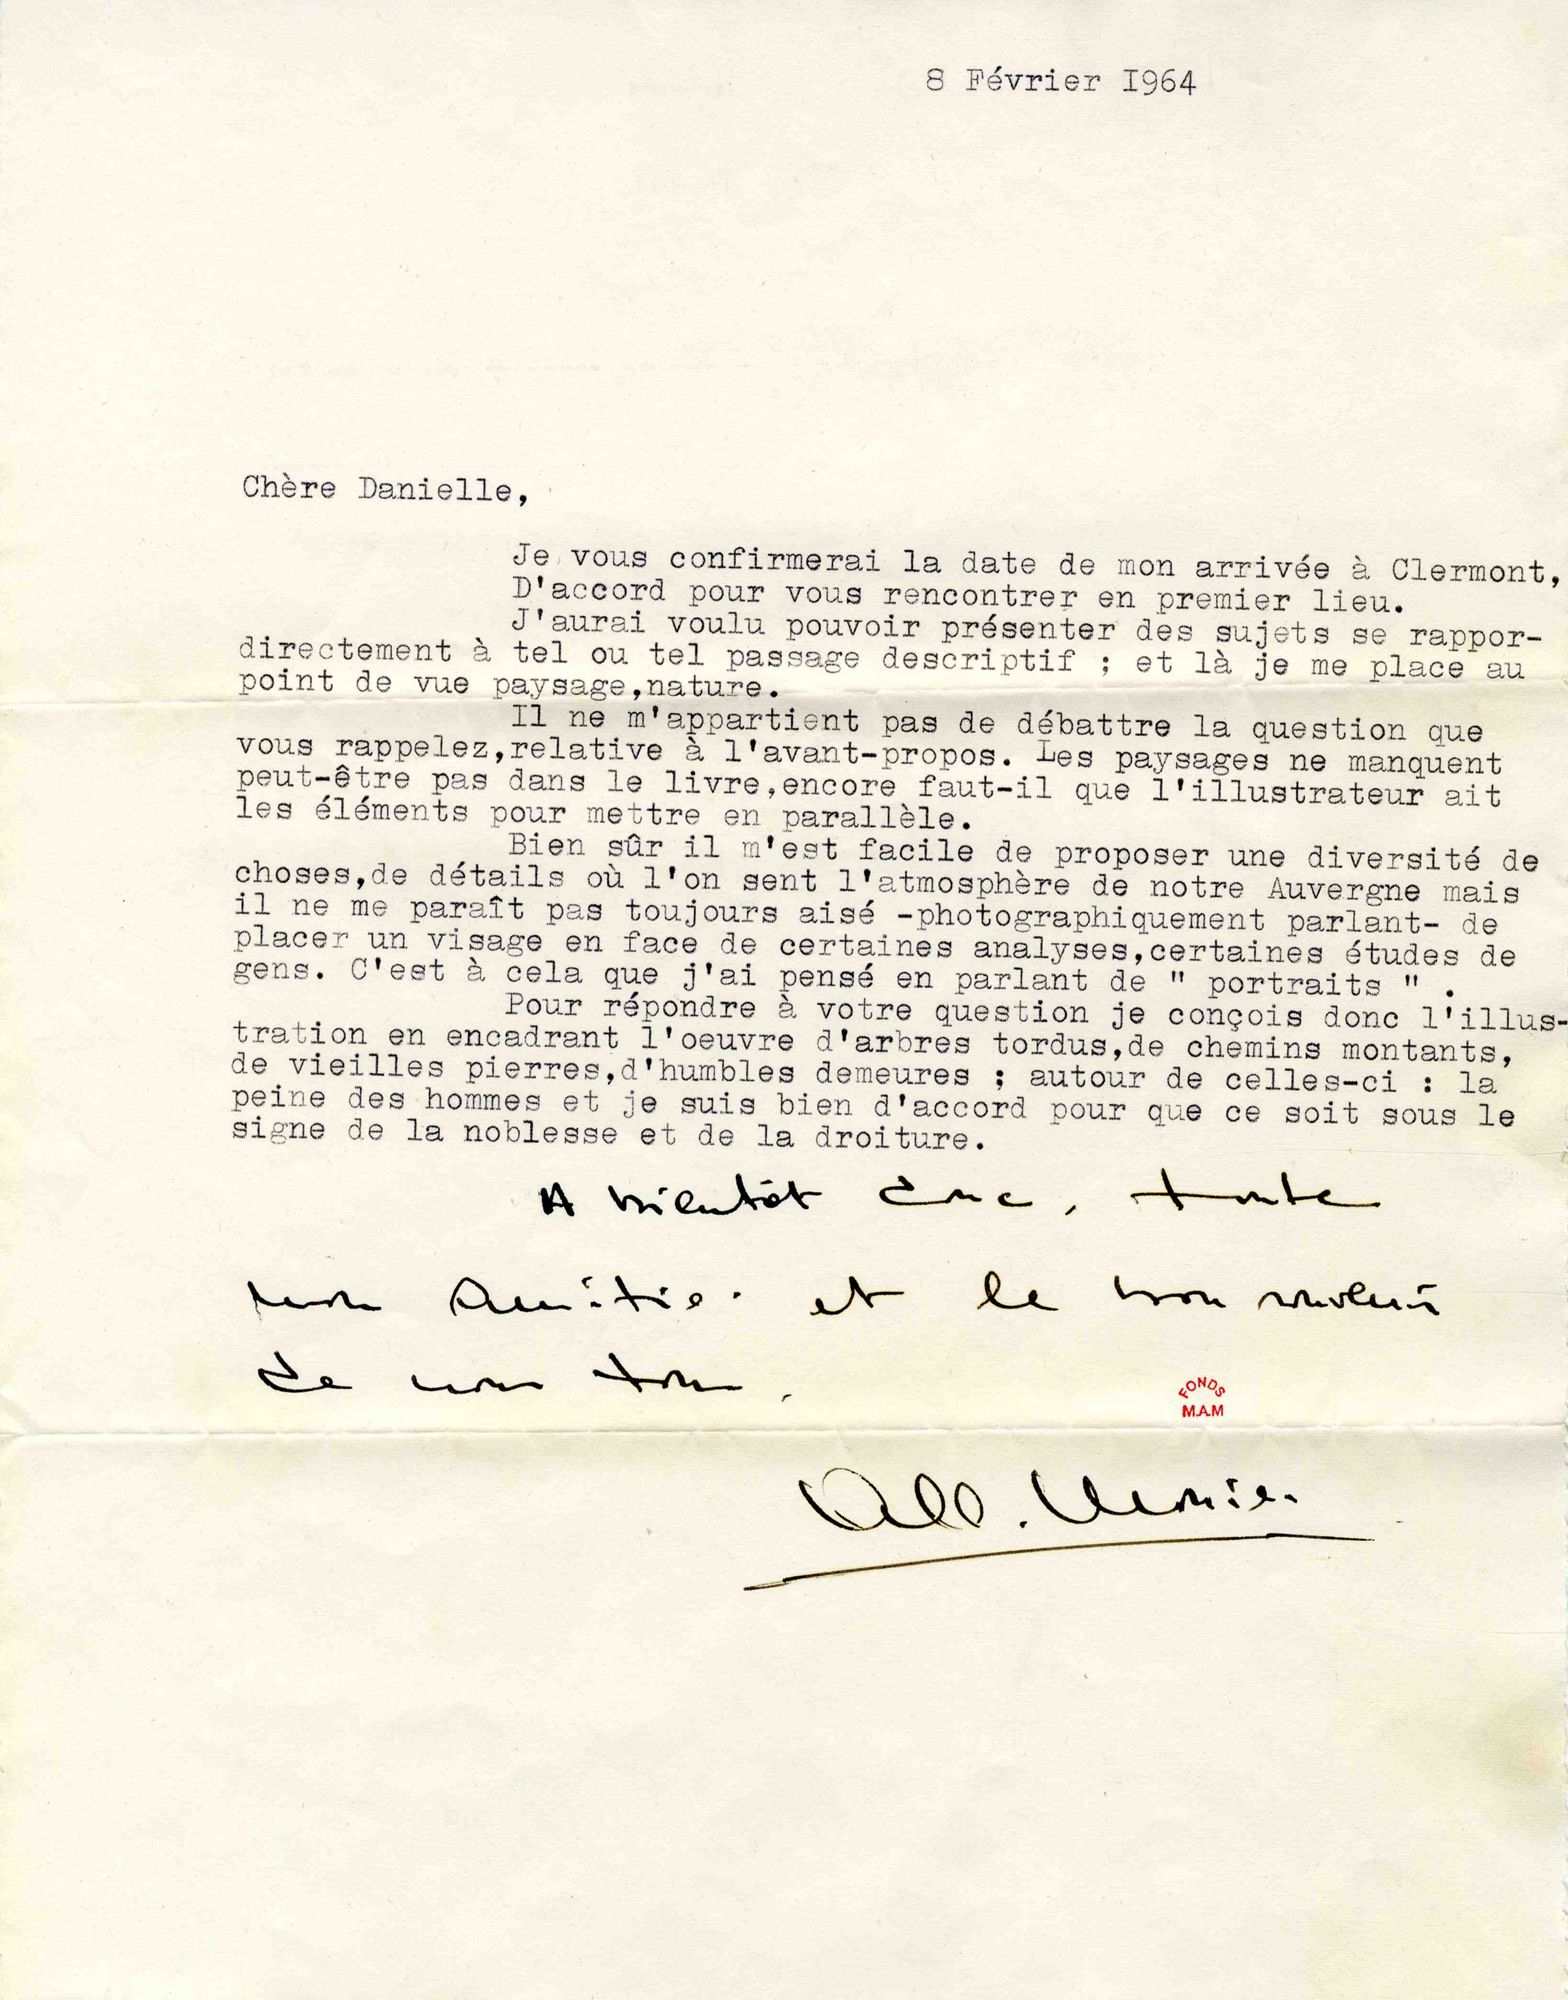 8 Février I964
Chère Danielle,
Je vous confirmerai la date de mon arrivée à Clermont,
D'accord pour vous rencontrer en premier lieu.
J'aurai voulu pouvoir présenter des sujets se rappor-
directement à tel ou tel passage descriptif ; et là je me place au
point de vue paysage,nature.
Il ne m'appartient pas de débattre la question que
vous rappelez,relative à l'avant-propos. Les paysages ne manquent
peut-être pas dans le livre,encore faut-il que l'illustrateur ait
les éléments pour mettre en parallèle.
Bien sûr il m'est facile de proposer une diversité de
choses,de détails où l'on sent l'atmosphère de notre Auvergne mais
il ne me paraît pas toujours aisé -photographiquement parlant- de
placer un visage en face de certaines analyses,certaines études de
gens. C'est à cela que j'ai pensé en parlant de " portraits " .
Pour répondre à votre question je conçois donc l'illus-
tration en encadrant l'oeuvre d'arbres tordus,de chemins montants,
de vieilles pierres,d'humbles demeures ; autour de celles-ci : la
peine des hommes et je suis bien d'accord pour que ce soit sous le
signe de la noblesse et de la droiture.
A bientôt donc, toute
mon amitié et le bon souvenir
de nous tous.
FONDS
M.A.M
Alb. Monier